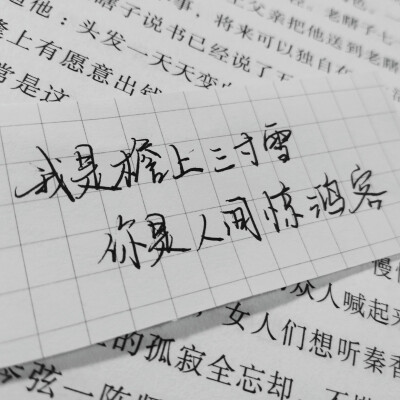 道他：头发一天天变
瞎子说书已经说了五
父亲把他送到老瞎
老瞎子七
事，将来可以独自在
上有愿意出钱
常是这
我是檐上三寸雪
你是人间惊鸿客
慢
众人喊起来
女人们想听秦香
的孤寂全忘却，不
弦一阵